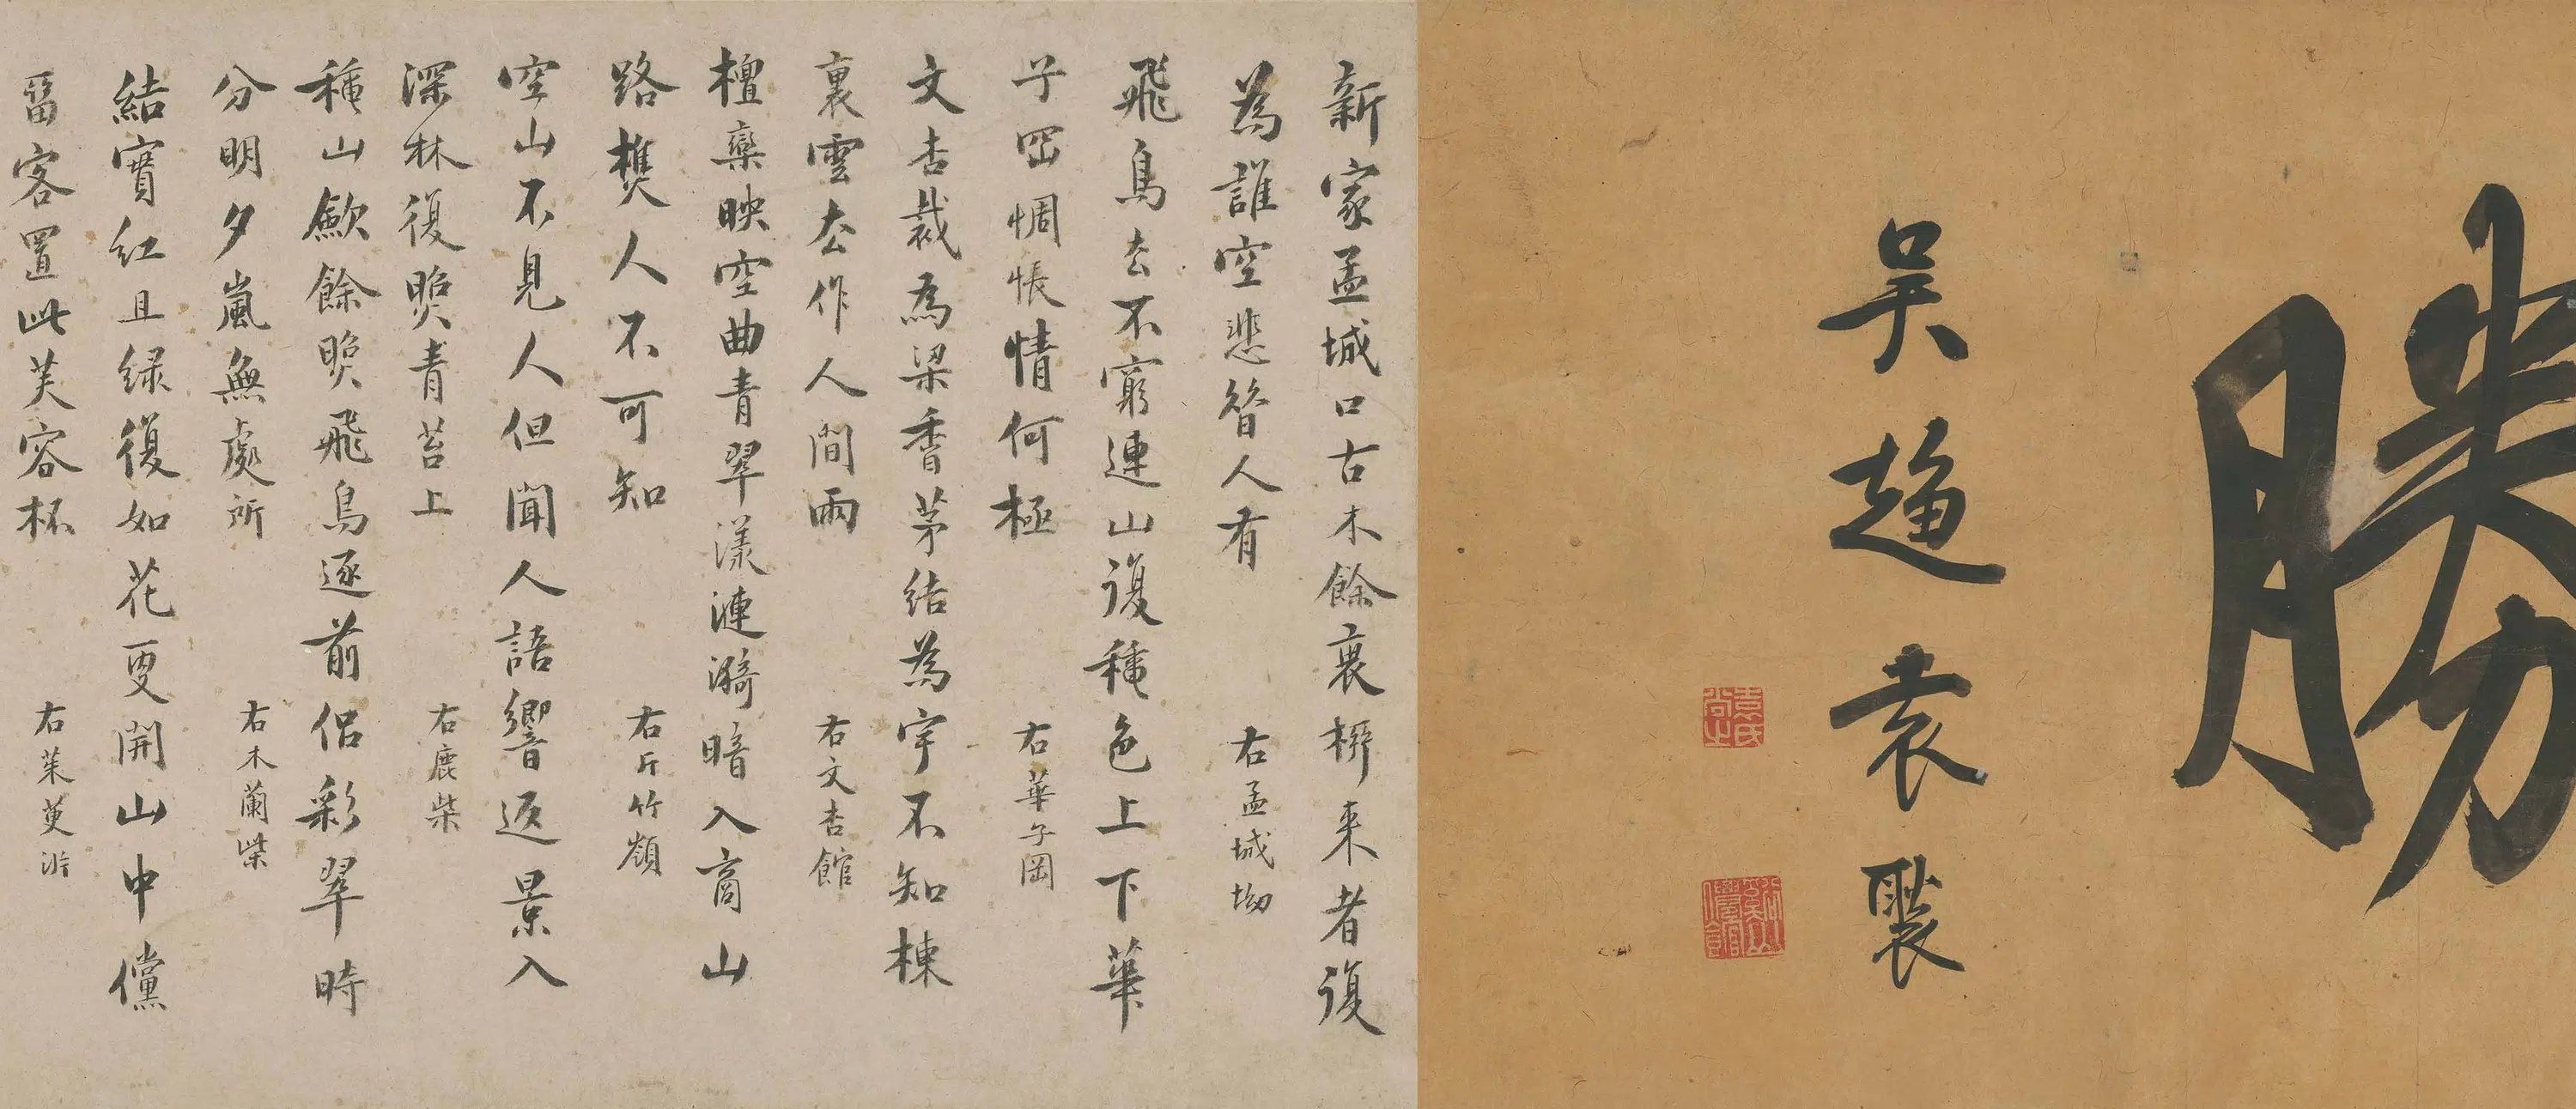 勝
吳趨袁褧
袁氏尚之
新家孟城口古木餘衰柳来者復
為誰空悲昔人有
右孟城坳
飛鳥去不窮連山復穐色上下華
子罡惆悵情何極
右華子岡
文杏裁為梁香茅結為宇不知棟
裏雲去作人間雨
右文杏館
檀欒映空曲青翠漾漣漪暗入商山
路樵人不可知
右斤竹嶺
空山不見人但聞人語響返景入
深林復照青苔上
右鹿柴
穐山斂餘照飛鳥逐前侣彩翠時
分明夕嵐無處所
右木蘭柴
結實紅且緑復如花更開山中儻
留客置此芙容杯
右茱萸沜